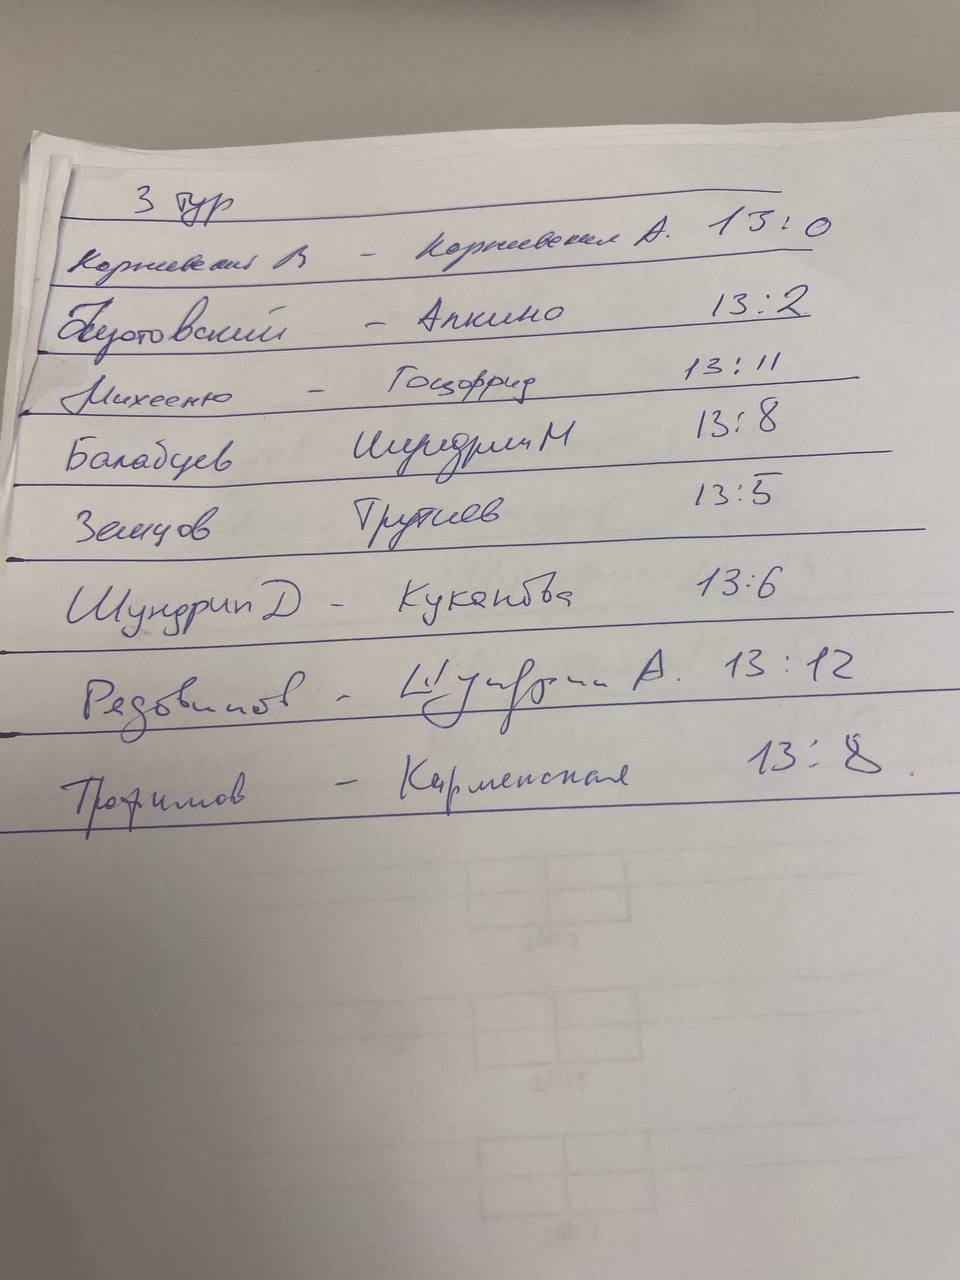 3 тур
Корниевская В - Корниевская А. 13:0
- Апкино 13:2
Михеенко - Гоцфрид 13:11
Балабуев Шундрин М 13:8
Земцов Трутнев 13:5
Шундрин Д - Куканова 13:6
Редовиков - Шундрин А. 13:12
Трофимов - Карменская 13:8